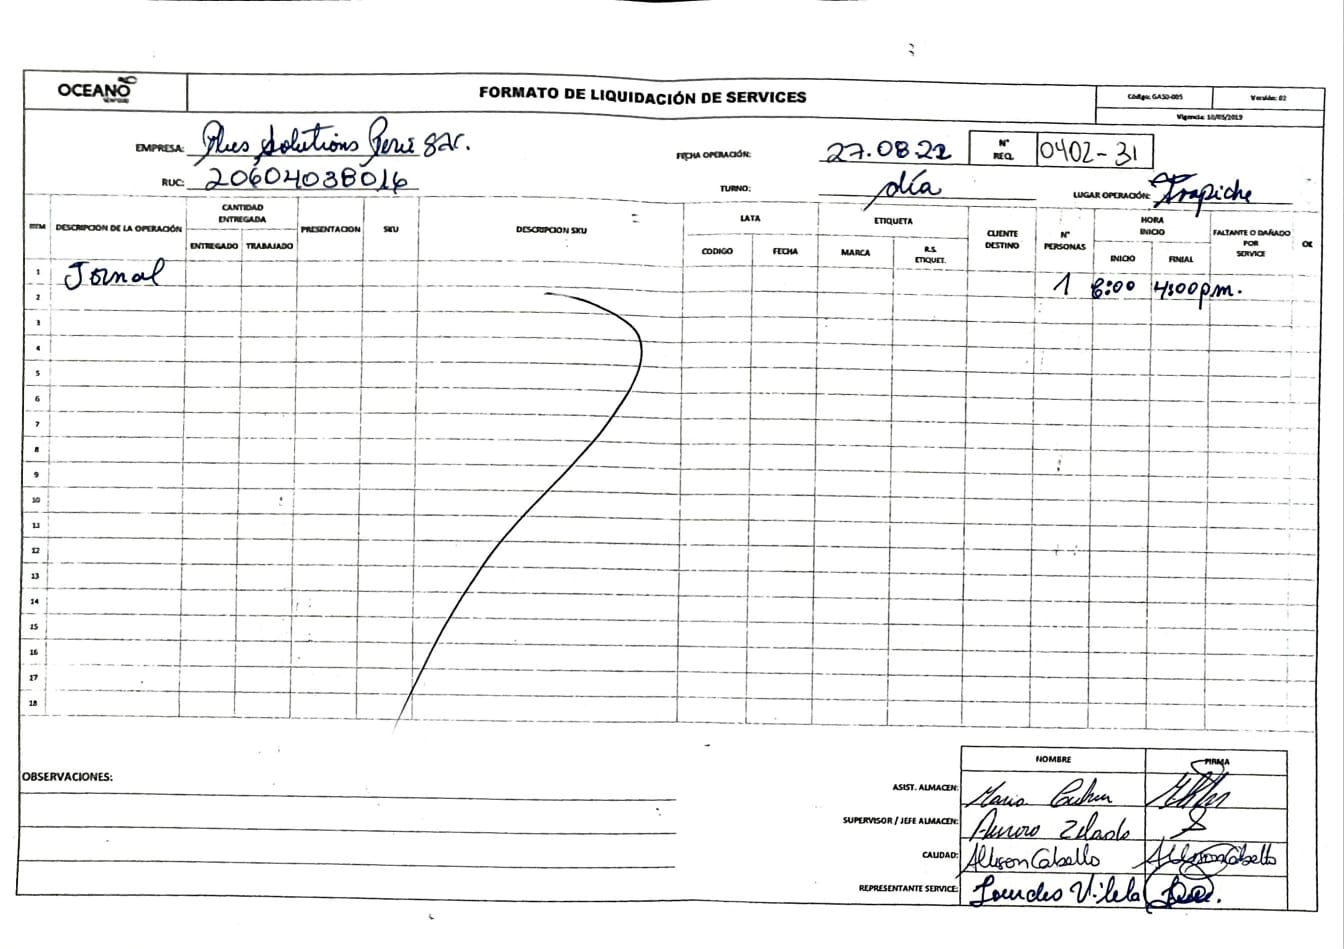 OCEANO
SEAFOOD
FORMATO DE LIQUIDACIÓN DE SERVICES
Código: GASO-005
Versión: 02
Vigencia: 10/05/2019
EMPRESA: Plus Solutions Perú sac.
FECHA OPERACIÓN: 27.08.22
N° REQ. 0402-31
RUC: 20604038016
TURNO: día
LUGAR OPERACIÓN: Trapiche
ITEM
DESCRIPCIÓN DE LA OPERACIÓN
CANTIDAD ENTREGADA
ENTREGADO
TRABAJADO
PRESENTACION
SKU
DESCRIPCION SKU
LATA
CODIGO
FECHA
ETIQUETA
MARCA
R.S. ETIQUET.
CLIENTE DESTINO
N° PERSONAS
HORA INICIO
INICIO
FINIAL
FALTANTE O DAÑADO POR SERVICE
OK
1 Jornal 1 8:00 4:00pm.
2
3
4
5
6
7
8
9
10
11
12
13
14
15
16
17
18
OBSERVACIONES:
NOMBRE
FIRMA
ASIST. ALMACEN: Mario
SUPERVISOR / JEFE ALMACEN:
CALIDAD: Allison Cabello Allison Cabello
REPRESENTANTE SERVICE: Lourdes Vilela